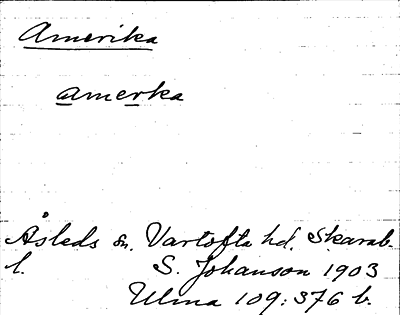 Amerika
amerka
Åsleds sn. Vartofta hd. Skarab.
l. S. Johanson 1903
Ulma 109:376 b.